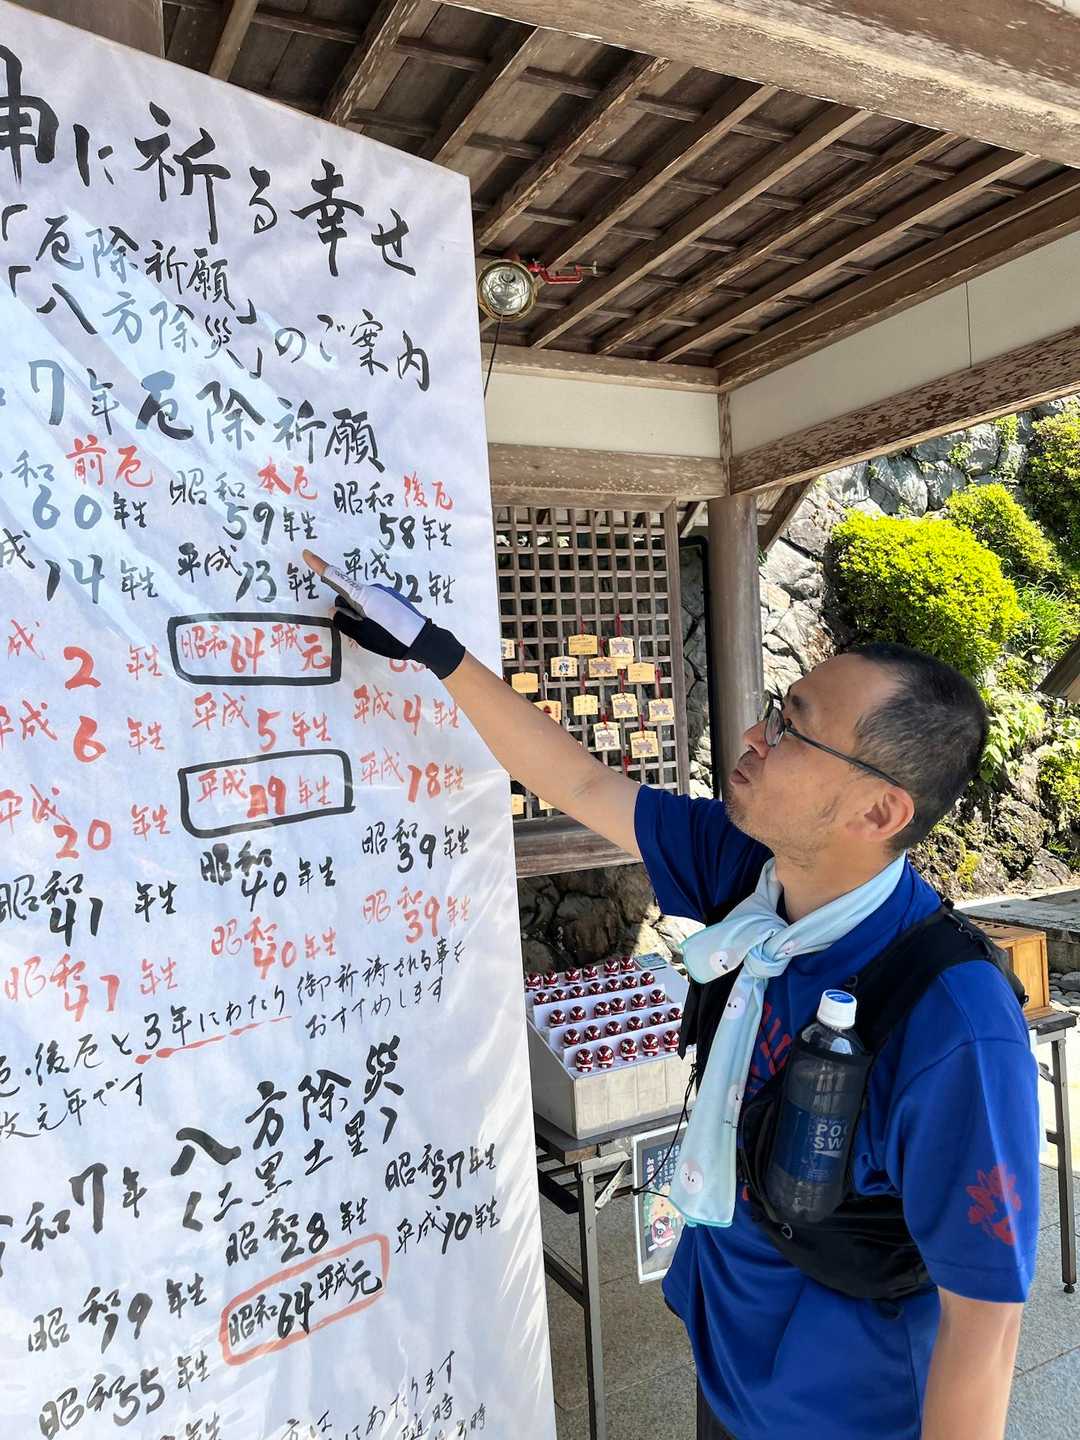 神に祈る幸せ
「厄除祈願」
「八方除災」のご案内
和7年厄除祈願
前厄 本厄 後厄
昭和60年生 昭和59年生 昭和58年生
成14年生 平成13年生 平成12年生
成2年生 昭和64平成元
平成6年生 平成5年生 平成4年生
平成20年生 平成29年生 平成18年生
昭和41年生 昭和40年生 昭和39年生
昭和47年生 昭和40年生 昭和39年生
厄・後厄と3年にわたり御祈祷される事を
おすすめします
改元年です
令和7年八方除災
(二黒土星)
昭和9年生 昭和28年生 昭和37年生
昭和55年生 昭和64平成元 平成10年生
方は
にあたります
随時
時
POC
SW